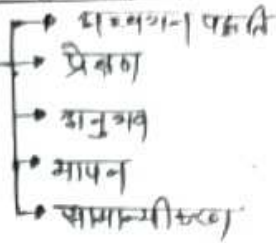 अध्ययन पद्धति
प्रेक्षण
अनुभव
मापन
सामान्यीकरण